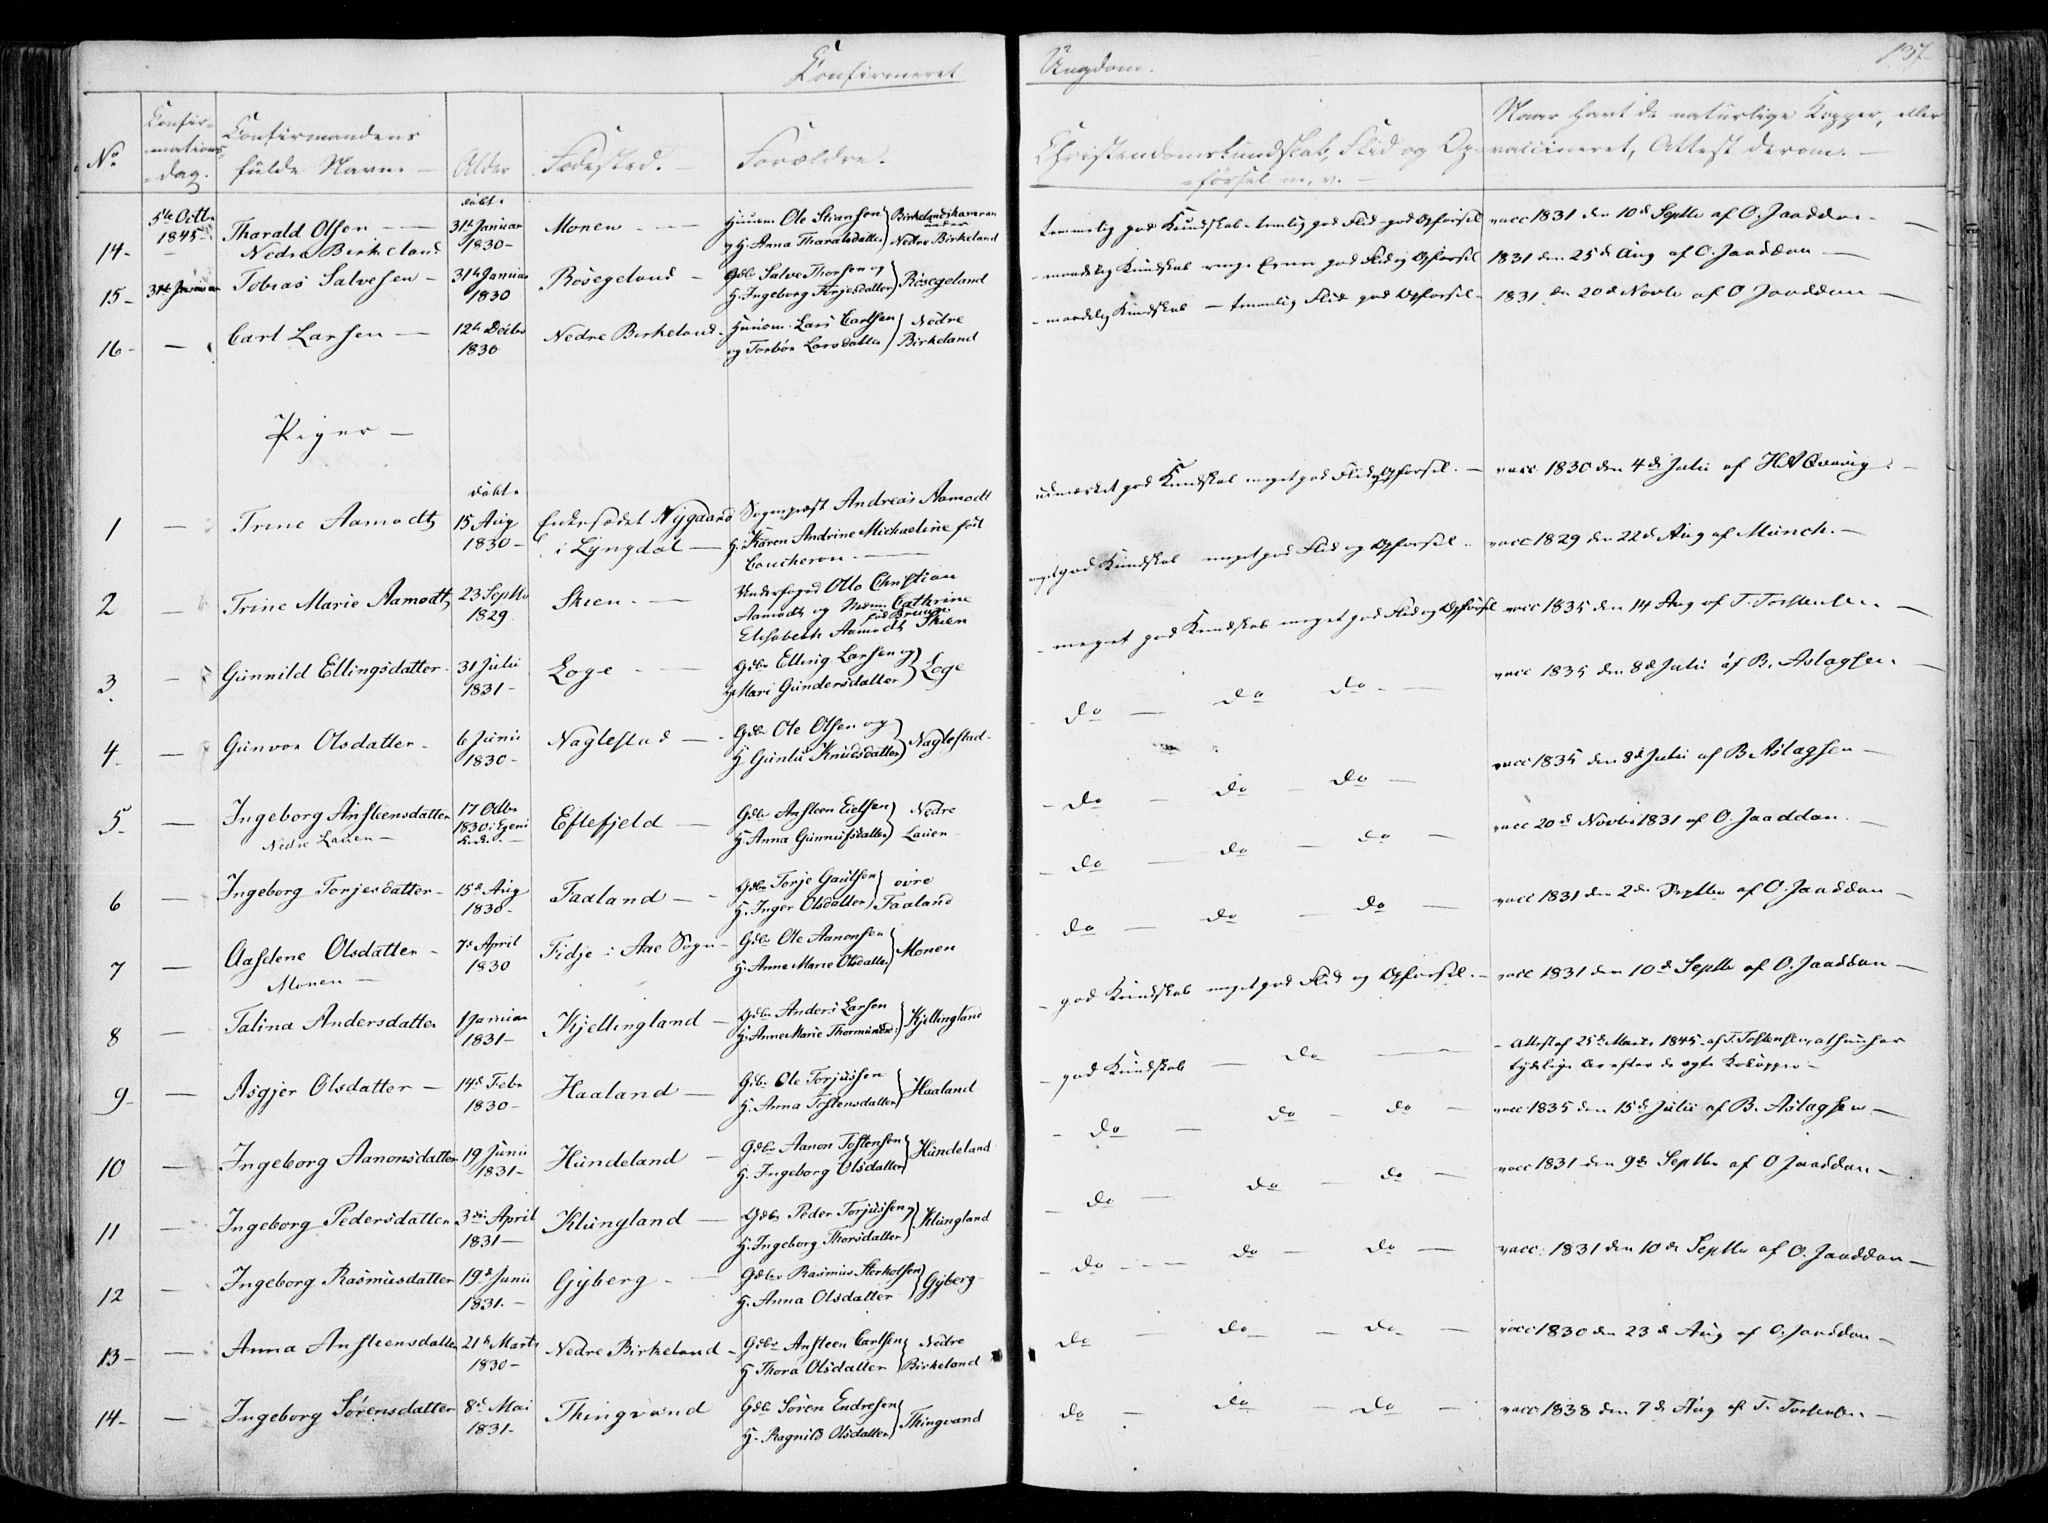 Confirmeret Ungdom. 137
No
Confir-
mations
dag.
Confirmandens
fulde Navn. —
Alder
Fødested. —
Forældre. —
Christendomskundskab, Flid og Op-
-førsel m. v. —
Naar havt de naturlige Kopper, eller
vaccineret, Attest derom. —
14- 5te Octbr 1845- Tharald Olsen — Nedre Birkeland døbt 31te Januar 1830- Monen — Ole Stiansen og H. Anna Tharalsdatter Nedre Birkeland temmelig god Kundskab temlig god Flid god Opførsel vacc 1831 den 10de Septbr af O. Jaaddan —
15- Tobias Salvesen — 31te Januar 1830 Røsegeland — Gdbr Salve Thorsen og H. Ingeborg Torjesdatter Røsegeland maadelig Kundskab god Flid og Opførsel 1831 den 25de Aug af O. Jaaddan —
16- — Carl Larsen — 12te Decbr 1830 Nedre Birkeland Huusm. Lars Carlsen og Torbør Larsdatter Nedre Birkeland maadelig Kundskab — temmelig Flid god Opførsel 1831 den 20de Novbr af O Jaaddan —
Piger —
1 — Trine Aamodt døbt 15 Aug 1830 — Enkesædet Nygaard i Lyngdal — Sognepræst Andreas Aamodt H. Karen Andrine Michaeline født Coucheron. — udmærket god Kundskab meget god Flid og Opførsel. — vacc 1830 den 4de Juli af H A Qvavig. —
2 — Trine Marie Aamodt 23 Septbr 1829 Skien. — Underfoged Otto Christian Aamodt og Mdm Cathrine Elisabeth Aamodt født Bruun Skien god Kundskab meget god Flid og Opførsel. vacc 1829 den 22de Aug af Münch. —
3 — Gunnild Ellingsdatter 31 Julii 1831 — Løge — Gdbr Elling Larsen og H. Mari Gundersdatter Løge — meget god Kundskab meget god Flid og Opførsel vacc 1835 den 14 Aug af T. Tostensen. —
4 — Gunvor Olsdatter — 6 Junii 1830 — Naglestad — Gdbr Ole Olsen og H. Gunlu Knudsdatter Naglestad — do — do do — vacc 1835 den 8de Julii af B. Aslagsen. —
5 — Ingeborg Ansteensdatter Nedre Lauen — 17 Octbr 1830 i Kirke Eftefjeld — Gdbr Ansteen Eielsen H. Anna Gunnufsdatter Nedre Lauen — do — do — do — vacc 1835 den 8de Julii af B Aslagsen —
6 — Ingeborg Torjesdatter — 15de Aug 1830 — Faaland — Gdbr Torje Gaulsen H. Inger Olsdatter øvre Faaland — do — do — do — vacc 20de Novbr 1831 af O. Jaaddan. —
7 — Aaselene Olsdatter — Monen — 7de April 1830 Fidje i Aae Sogn — Gdbr Ole Aanonsen H. Anne Marie Olsdatter Monen — do — do — do — vacc 1831 den 2den Septbr af O. Jaaddan —
8 — Talina Andersdatter 1 Januar 1831 — Kjellingland — Gdbr Anders Larsen H. Anne Marie Thormundsd: Kjellingland — god Kundskab meget god Flid og Opførsel. — vacc 1831 den 10de Septbr af O. Jaaddan —
9 — Asgjer Olsdatter — 14de Febr 1830 — Haaland — Gdbr Ole Torjussen H. Anna Tostensdatter Haaland — god Kundskab — do — Attest af 25de Marts 1845 af T. Tostensen, at hun har tydelige Ar efter de ægte Kokopper —
10 — Ingeborg Aanonsdatter 19 Junii 1831 — Hundeland — Gdbr Aanon Tostensen H. Ingeborg Olsdatter Hundeland — do — do — do — vacc 1835 den 15de Julii af B. Aslagsen —
11 — Ingeborg Pedersdatter 3die April 1831 — Klungland — Gdbr Peder Torjussen og H. Ingeborg Thorsdatter Klungland — do — do — do — vacc 1831 den 9de Septbr af O Jaaddan —
12 — Ingeborg Rasmusdatter 19de Junii 1831. — Gyberg — Gdbr Rasmus Sterkolsen H. Anna Olsdatter Gyberg — do — do — do — vacc. 1831 den 10de Septbr af O. Jaaddan —
13 — Anna Ansteensdatter 21de Marts 1830 — Nedre Birkeland — Gdbr Ansteen Carlsen H. Thora Olsdatter Nedre Birkeland do — do — do — vacc 1830 den 23de Aug af O. Jaaddan —
14 — Ingeborg Sørensdatter 8de Mai 1831 — Thingvand Gdbr Søren Endresen H. Ragnild Olsdatter Thingvand do — do — do — vacc 1838 den 7de Aug af T. Tostensen —